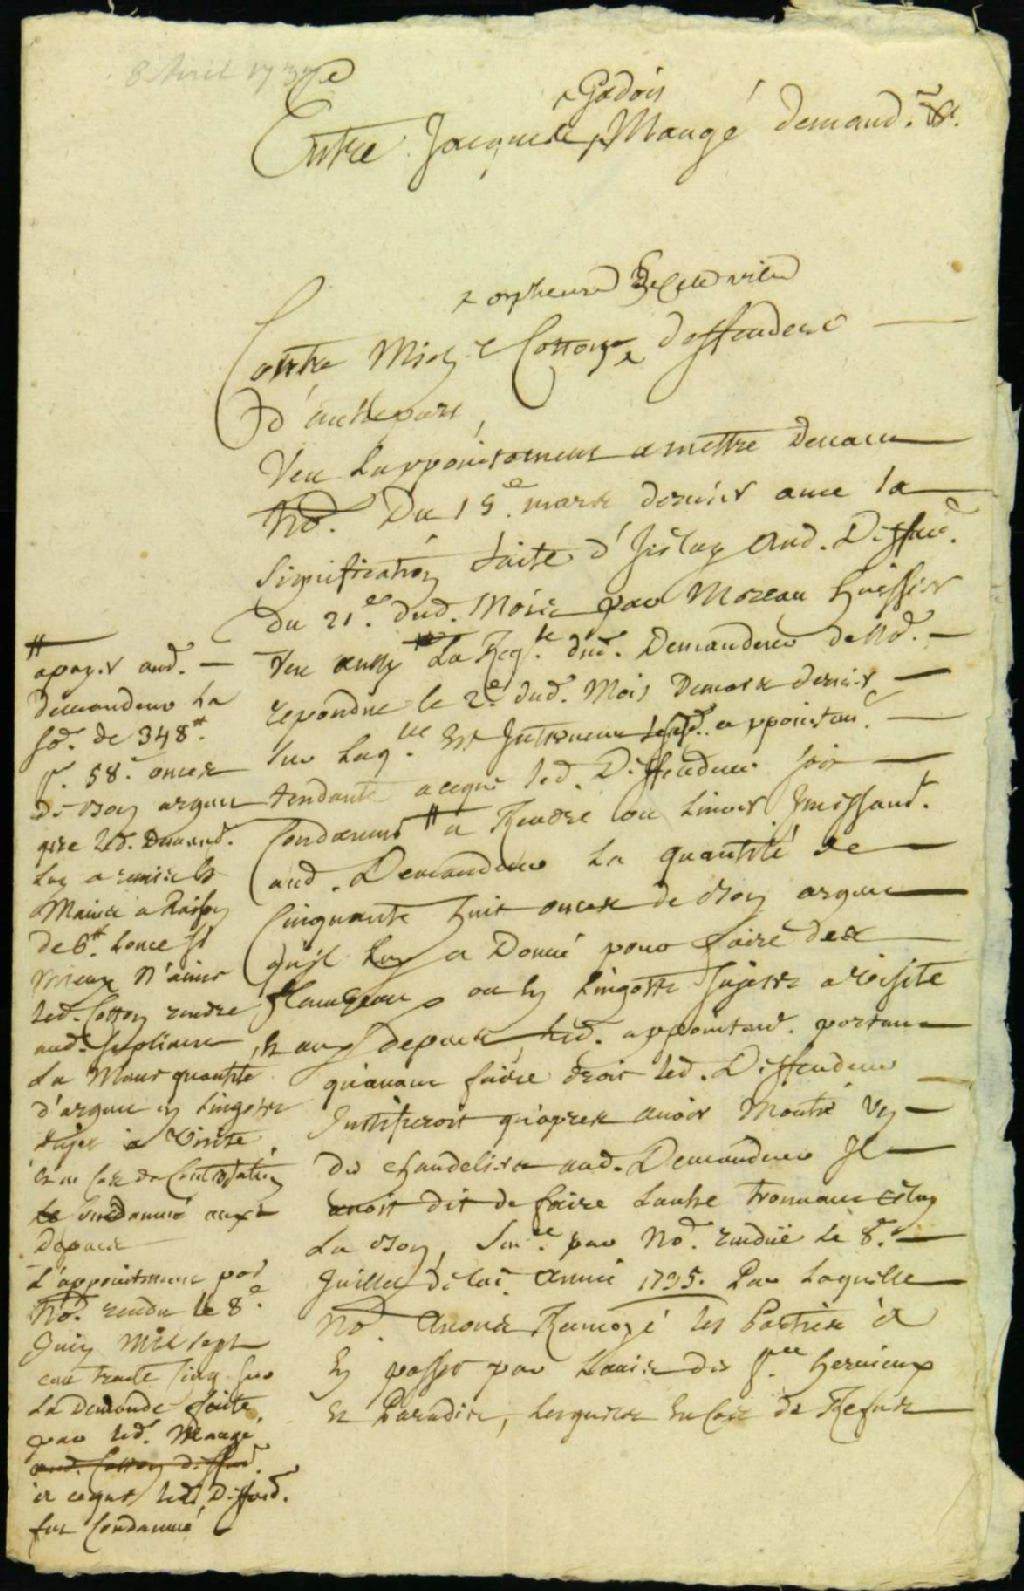 8 Avril 173
Godois
Entre Jacques Maugé demand.r
orpheuvre de cette ville
Contre Mich.l Cotton deffendeur
d'autre part,
Veu L'appointement a mettre devant
Nd. Du 15.e mars dernier avec la
Signification faite d'Iceluy aud. Deffend.
du 21.e dud. Mois par Moreau huissier
Veu aussy La Req.te dud. Demandeur de Nd.
repondue le 2.e dud. Mois De mars dernier
sur Laq.lle Est Intervenu led. appointem.t
tendante a ceque led. Deffendeur soit
Condamné # a Rendre ou Livrer Incessam.t
aud. Demandeur La quantité de
Cinquante huit onces de Bon argent
qu'il Luy a Donné pour faire des
flambeaux ou En Lingotte Sujette a visite
Et aux depens, Led. appointem.t portant
qu'avant faire droit led. Deffendeur
Justifieroit qu'apres avoir Montré Un
des chandeliers aud. Demandeur Il
avoit dit de faire L'autre trouvant Celuy
La Bon, Sen.ce par Nd. rendüe le 8.e
Juillet de lad. année 1735. Par Laquelle
Nd. Avons Renvoyé les Parties a
En passer par L'avis des S.rs hervieux
Et Paradis, Lesquels En Cas de Refus
# apayer aud.
Demandeur La
So.e de 348.#
p.r 58. onces
de Bon argent
que led. Demand.
Luy a remis Es
Mains a Raison
de 6.# L'once Si
Mieux N'aime
led. Cotton rendre
aud. Supliant
La Meme quantité
d'argent en Lingotte
Sujet a Visite
Et en Cas de Contestation
Condamné aux
Depens
L'appointement par
Nd. rendu le 8.e
Juin Mil sept
cent trente Cinq Sur
La Demande faite
par led. Maugé
aud. Cotton deffend.
a ceque led. Deffend.
fut Condamné